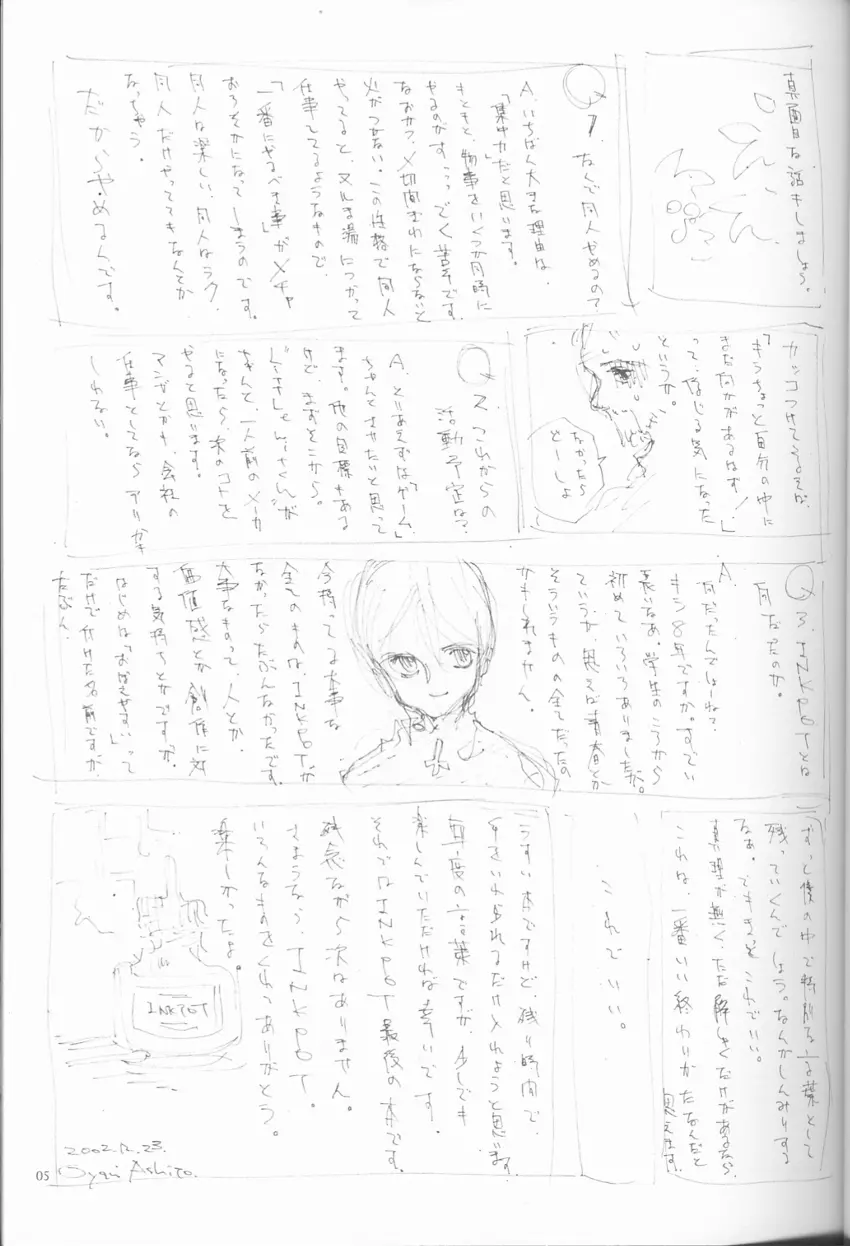 真面目な話をしましょう。
Q1. なんで同人やめるの?
A. いちばん大きな理由は、
「集中力」だと思います。
もともと、物事をいくつか同時に
やるのがすっっごく苦手です。
なおかつ、〆切間ぎわにならないと
火がつかない。この性格で同人
やってると、ヌルま湯につかって
仕事してるようなもので、
「一番にやるべき事」がメチャ
おろそかになってしまうのです。
同人は楽しい、同人はラク、
同人だけやってても、なんとか
なっちゃう。
だからやめるんです。
カッコつけてるんだが、
「もうちょっと自分の中に
まだ何かがあるはず!」
って、信じる気になった
というか。
なかったら
どーしよ
Q2. これからの
活動予定は?
A. とりあえずは「ゲーム」
ちゃんとさせたいと思って
ます。他の目標もある
けど、まずそこから。
ちゃんと、一人前のメーカ
になったら、次のコトを
やると思います。
マンガとかも、会社の
仕事としてなら アリかも
しれない。
Q3. INKPOTとは
何だったのか。
A.
何だったんでしょーねえ?
もう8年ですか。すごい
長いなあ。学生のころから
初めていろいろありましたが。
ていうか、思えば青春とか
そういうものの全てだったの
かもしれません。
今持ってる大事な
全てのものは、INKPOTが
なかったらたぶんなかったです。
大事なものって、人とか、
価値感とか創作に対
する気持ちとかですが。
はじめは「おぼえやすい」って
だけで付けた名前ですが、
たぶん、
ずっと僕の中で特別な言葉として
残っていくんでしょう。なんかしんみりする
なぁ。でもきっとこれでいい。
真理が無く、ただ解しゃくだけがあるなら、
これは、一番いい終わりかたなんだと
思えます。
これでいい。
うすい本ですけど、残り時間で、
手をいれられるだけ入れようと思います。
毎度の言葉ですが、少しでも
楽しんでいただければ幸いです。
それではINKPOT最後の本です。
残念ながら次はありません。
さようなら、INKPOT。
いろんなものをくれてありがとう。
楽しかったよ。
INKPOT
2002.12.23.
Oyari Ashito.
05